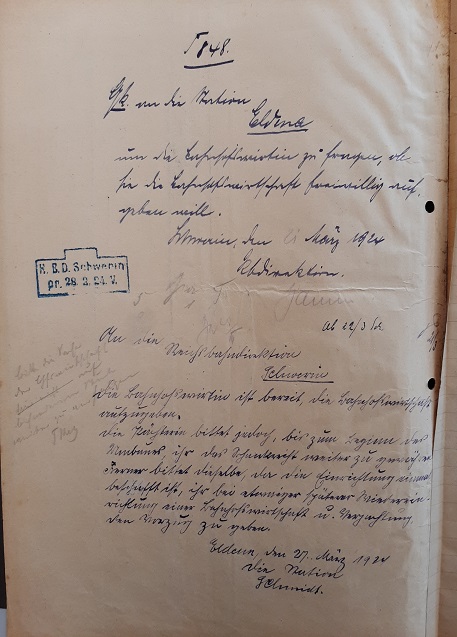 T 848.
G.R. an die Station
Eldena
um die Bahnhofswirtin zu fragen, ob
sie die Bahnhofswirtschaft freiwillig auf-
geben will.
Schwerin, den 21 März 1924
Rbdirektion.
R. B. D. Schwerin
pr. 28. 3. 24. V.
Ab 22/3
An die
Reichsbahndirektion
Schwerin
Die Bahnhofswirtin ist bereit, die Bahnhofswirtschaft
aufzugeben.
Die Pächterin bittet jedoch, bis zum Beginn des
Umbaues, ihr das Schankrecht weiter zu gewähren.
Ferner bittet dieselbe, da die Einrichtung einmal
beschafft ist, ihr bei etwaiger späterer Wiederein-
richtung einer Bahnhofswirtschaft u. Verpachtung,
den Vorzug zu geben.
Eldena, den 27. März 1924
Die Station
Schmidt.